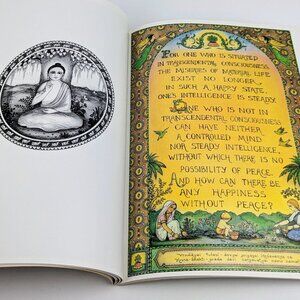 FOR ONE WHO IS SITUATED
IN TRANSCENDENTAL CONSCIOUSNESS,
THE MISERIES OF MATERIAL LIFE
EXIST NO LONGER...
IN SUCH A HAPPY STATE,
ONE'S INTELLIGENCE IS STEADY.
ONE WHO IS NOT IN
TRANSCENDENTAL CONSCIOUSNESS
CAN HAVE NEITHER
A CONTROLLED MIND
NOR STEADY INTELLIGENCE,
WITHOUT WHICH THERE IS NO
POSSIBILITY OF PEACE.
AND HOW CAN THERE BE
ANY HAPPINESS
WITHOUT PEACE?